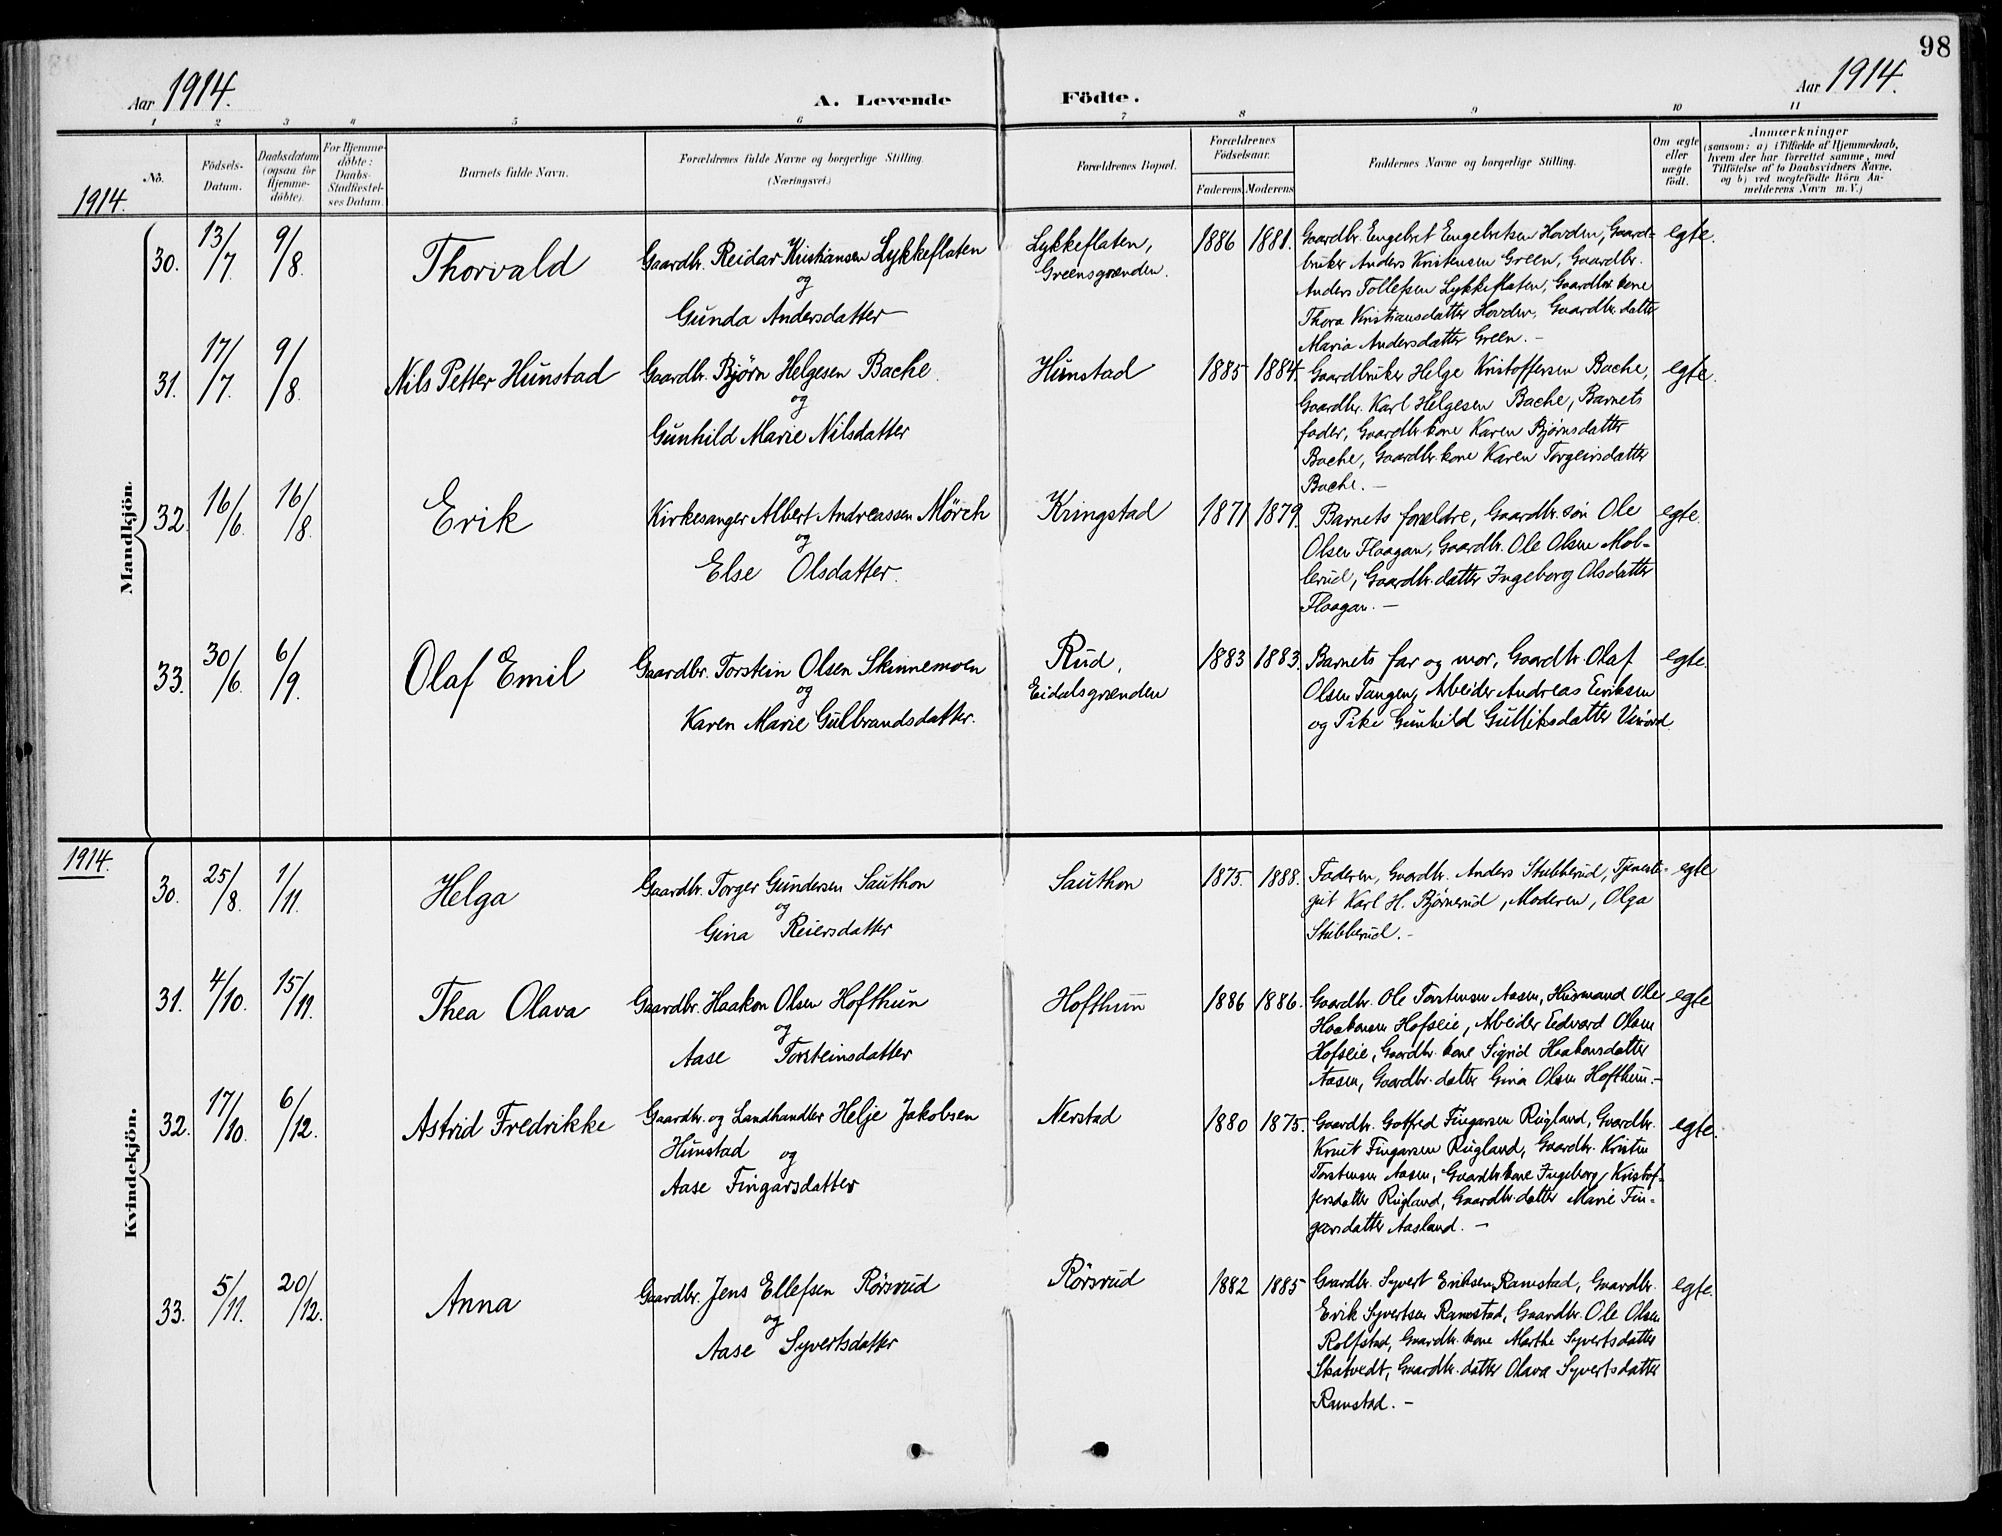 98
Aar 1914.
A. Levende Födte.
Aar 1914.
1 2 3 4 5 6 7 8 9 10 11
No.
Födsels-Datum.
Daabsdatum (ogsaa for Hjemme-döbte).
For Hjemme-döbte: Daabs-Stadfæstel-ses Datum.
Barnets fulde Navn.
Forældrenes fulde Navne og borgerlige Stilling. (Næringsvei.)
Forældrenes Bopæl.
Forældrenes Födselsaar.
Faderens Moderens
Faddernes Navne og borgerlige Stilling.
Om ægte eller uægte födt.
Anmærkninger
(saasom: a) i Tilfælde af Hjemmedaab, hvem der har forrettet samme, med Tilföielse af to Daabsvidners Navne, og b) ved uægtefödte Börn An-melderens Navn m. V.)
1914.
Mandkjön.
30. 13/7 9/8. Thorvald
Gaardbr. Reidar Kristiansen Lykkeflaten
og
Gunda Andersdatter
Lykkeflaten,
Greensgrænden.
1886 1881.
Gaardbr. Engebret Engebretsen Hovden, Gaard-
bruker Anders Kristensen Green, Gaardbr.
Anders Tollefsen Lykkeflaten, Gaardbr. kone
Thora Kristiansdatter Hovden, Gaardbr. datter
Maria Andersdatter Green. -
egte.
31. 17/7. 9/8. Nils Petter Hunstad
Gaardbr. Bjørn Helgesen Bache
og
Gunhild Marie Nilsdatter
Hunstad
1885 1884.
Gaardbruker Helge Kristoffersen Bache,
Gaardbr. Karl Helgesen Bache, Barnets
fader, Gaardbr. kone Karen Bjørnsdatter
Bache, Gaardbr. kone Karen Torgeirsdatter
Bache. -
egte.
32. 16/6. 16/8. Erik
Kirkesanger Albert Andreassen Mörch
og
Else Olsdatter.
Kringstad
1871 1879.
Barnets forældre, Gaardbr. søn Ole
Olsen Flaagan, Gaardbr. Ole Olsen Mol-
lerud, Gaardbr. datter Ingeborg Olsdatter
Flaagan. -
egte.
33. 30/6. 6/9. Olaf Emil
Gaardbr. Torstein Olsen Skinnemoen
og
Karen Marie Gulbrandsdatter.
Rud,
Eidalsgrænden
1883 1883.
Barnets far og mor, Gaardbr Olaf
Olsen Tangen, Arbeider Andreas Eeriksen
og Pike Gunhild Gulliksdatter
egte.
1914.
Kvindekjön.
30. 25/8. 1/11. Helga
Gaardbr. Torger Gundersen Sauthon
og
Gina Reiersdatter
Sauthon
1875. 1888.
Faderen, Gaardbr. Anders Stubberud, Tjeneste-
gut Karl H. Bjørnerud, Moderen, Olga
Stubberud. -
egte
31. 4/10. 15/11. Thea Olava
Gaardbr. Haakon Olsen Hofthun
og
Aase Torsteinsdatter
Hofthun
1886 1886.
Gaardbr. Ole Torstensen Aasen, Husmand Ole
Haakonsen Hofseie, Arbeider Edvard Olsen
Hofseie, Gaardbr. kone Sigrid Haakonsdatter
Aasen, Gaardbr. datter Gina Olsen Hofthun. -
egte
32. 17/10. 6/12. Astrid Fredrikke
Gaardbr. og Landhandler Helje Jakobsen
Hunstad og
Aase Fingarsdatter
Nerstad
1880 1875.
Gaardbr. Gotfred Fingarsen Rugland, Gaardbr.
Knut Fingarsen Rugland, Gaardbr. Kristen
Torstensen Aasen, Gaardbr. kone Ingeborg Kristof-
fersdatter Rugland, Gaardbr. datter Marie Fin-
garsdatter Aasland. -
egte.
33. 5/11. 20/12. Anna
Gaardbr. Jens Ellefsen Rørsrud
og
Aase Syvertsdatter
Rørsrud
1882 1885
Gaardbr. Syvert Eriksen Ramstad, Gaardbr.
Erik Syvertsen Ramstad, Gaardbr. Ole Olsen
Rolfstad, Gaardbr. kone Marthe Syvertsdatter
Skatvedt, Gaardbr. datter Olava Syvertsdatter
Ramstad. -
egte.